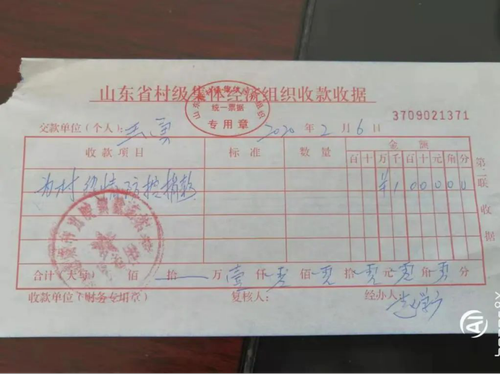 山东省村级集体经济组织收款收据
统一票据
专用章
3709021371
交款单位(个人): 2020 年 2 月 6 日
收款项目 标准 数量 金额
百 十 万 千 百 十 元 角 分
为村 疫情防控捐款 ¥ 1 0 0 0 0 0
第二联 收据
合计(大写) 佰 拾 万 壹 仟 零 佰 零 拾 零 元 零 角 零 分
收款单位(财务专用章) 复核人: 经办人:
AI